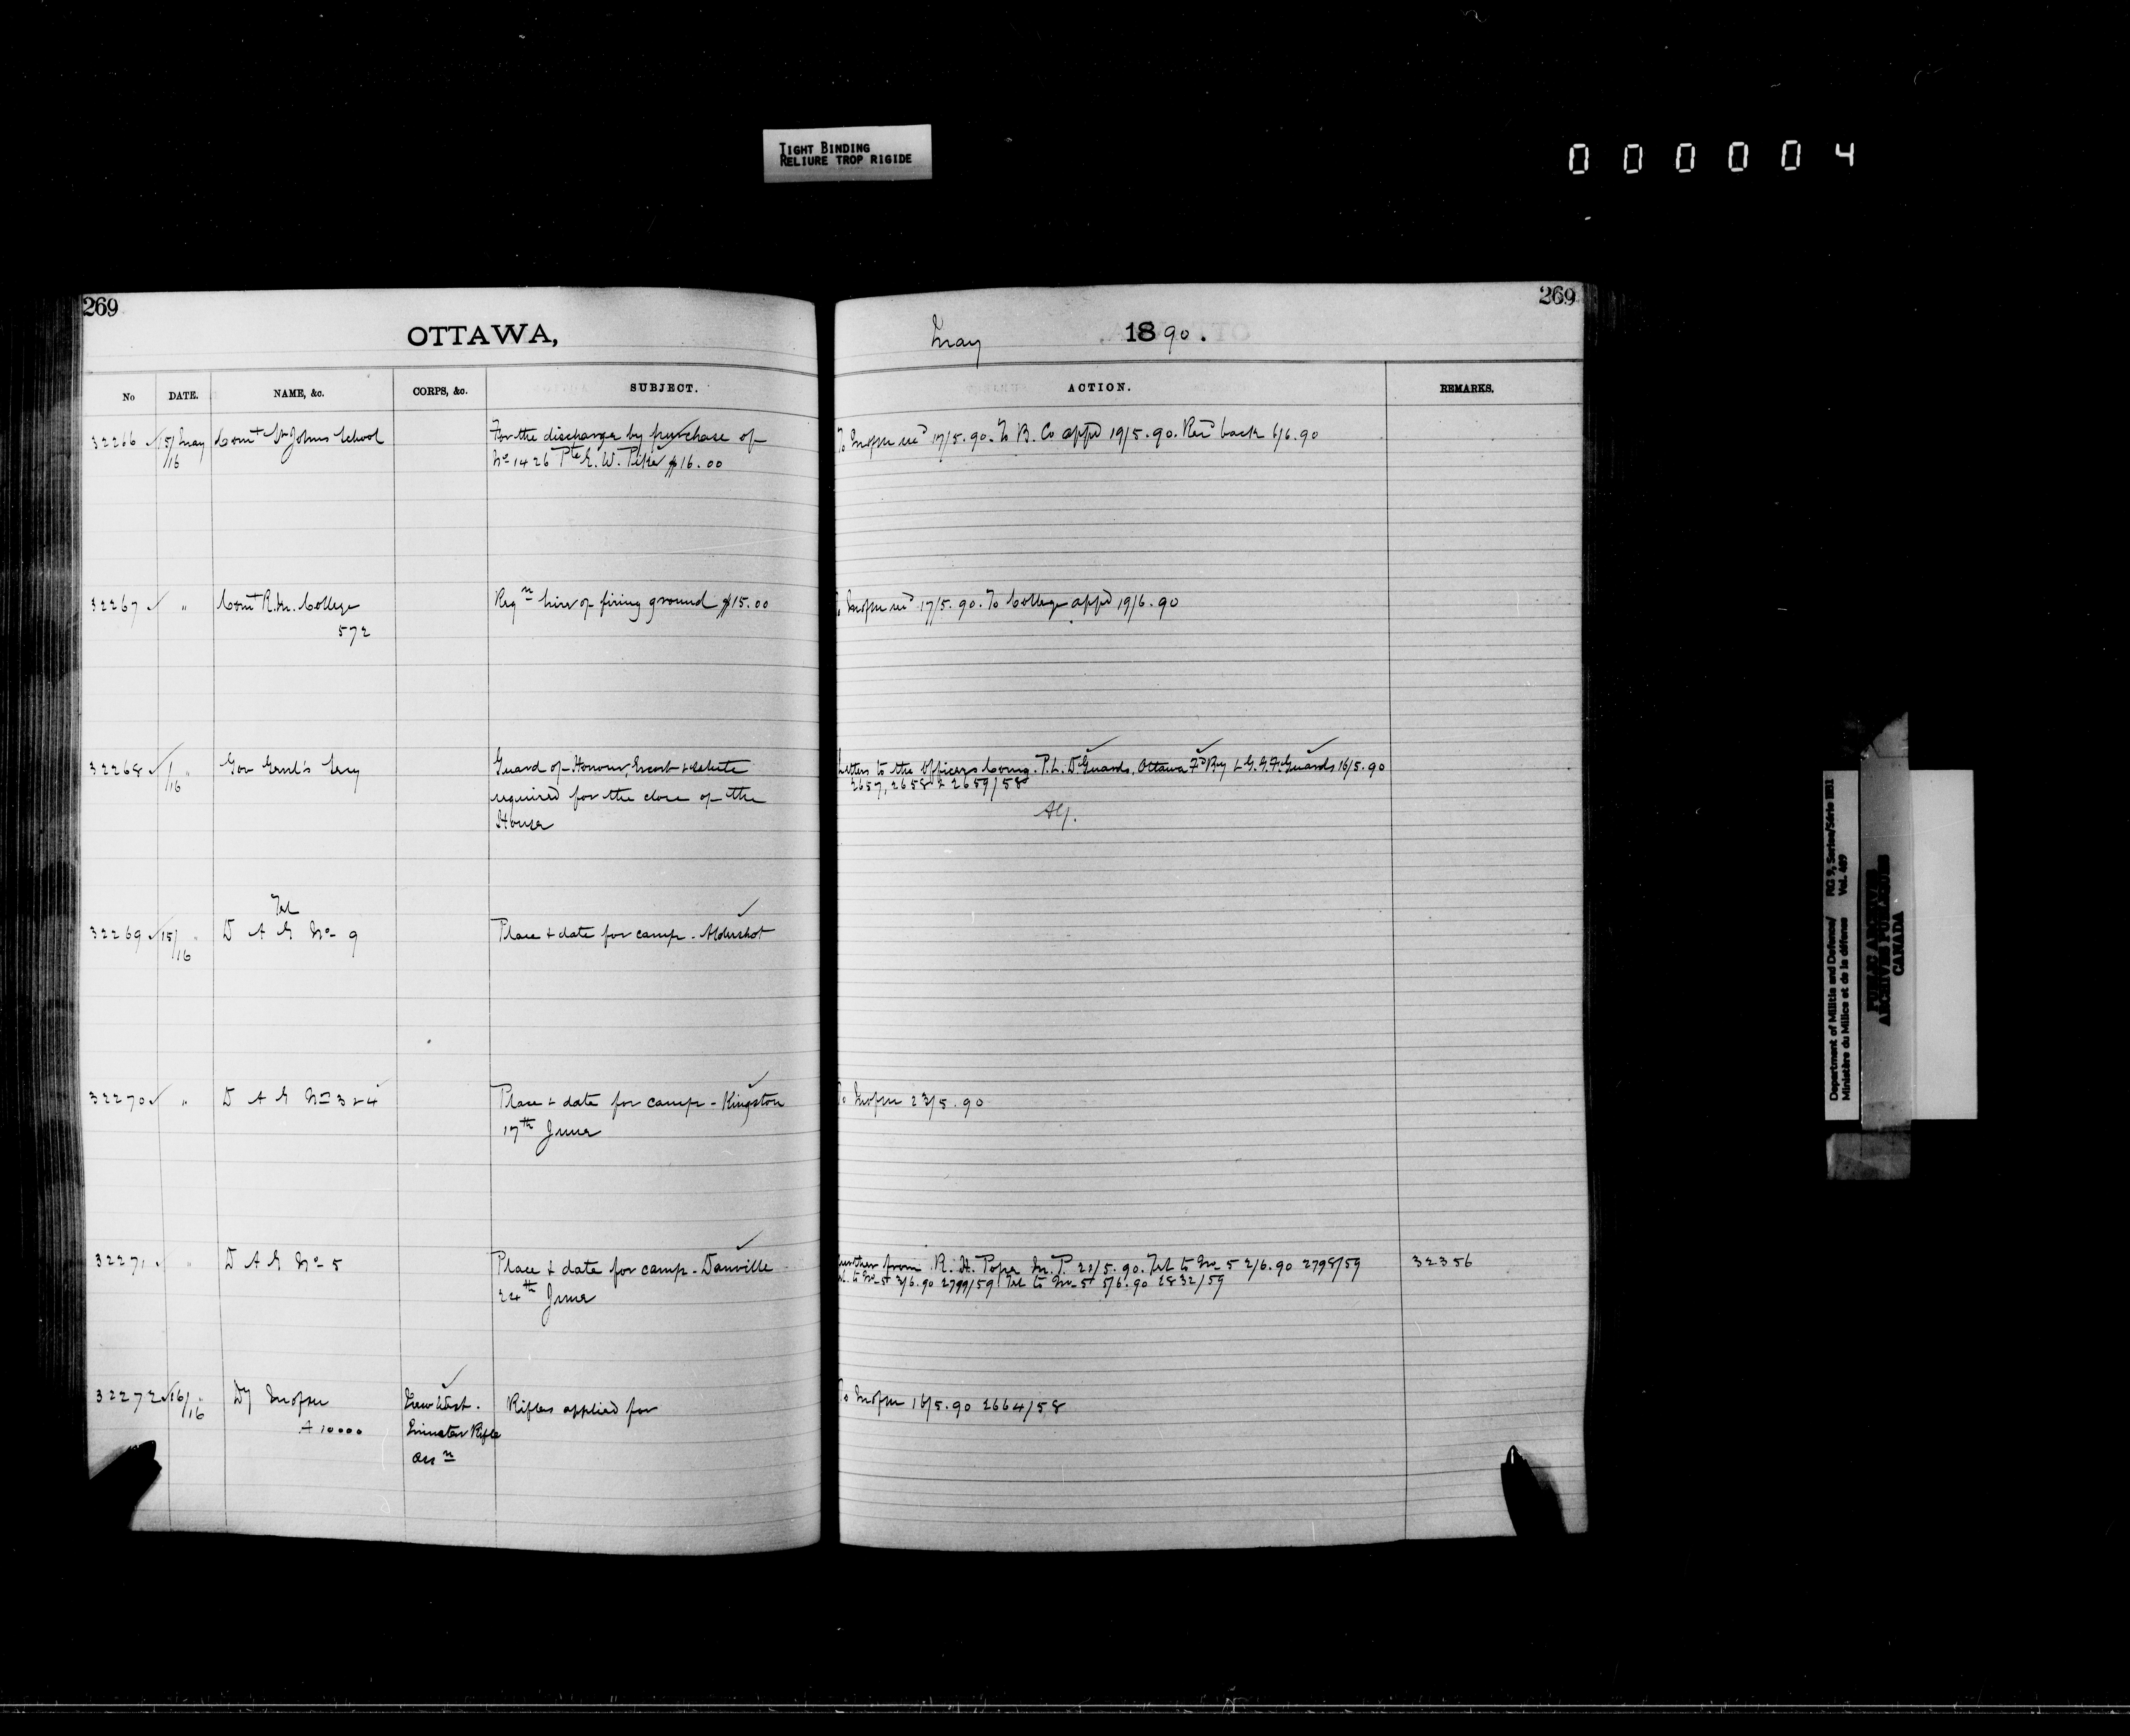 TIGHT BINDING
RELIURE TROP RIGIDE
000004
269
OTTAWA,
No DATE. NAME, &c. CORPS, &c. SUBJECT.
32266 15/16 May Comt St Johns School For the discharge by purchase of
No 1426 Pte E. W. Pike $16.00
32267 " Comt R. M. College Reqn hire of firing ground $15.00
572
32268 /16 " Gov Genl's Secy Guard of Honour, Escort & salute
required for the close of the
House
Tel
32269 15/16 " D A G No 9 Place & date for camp - Aldershot
32270 " D A G No 3 & 4 Place & date for camp - Kingston
17th June
32271 " D A G No 5 Place & date for camp - Danville
24th June
32272 16/16 " Dy Rifles applied for
A 10000 Rifle
Assn
269
May 1890.
ACTION. REMARKS.
To 17/5.90. To B. Co appd 19/5.90. Recd back 6/6.90
17/5.90. To College appd 19/6.90
Letters to the Officers Comg. P. L. D Guards, Ottawa Fd By & G. G. F. Guards 16/5.90
2657, 2658 & 2659/58
To 23/5.90
Further from R. H. Pope M. P. 20/5.90. Tel to No 5 2/6.90 2798/59 32356
Tel. to No 5 3/6.90 2799/59 Tel to No 5 5/6.90 2832/59
To 16/5.90 2664/58
Department of Militia and Defence/ RG 9, Series/Série IIB1
Ministère du Milice et de la défense Vol. 489
PUBLIC ARCHIVES
ARCHIVES PUBLIQUES
CANADA